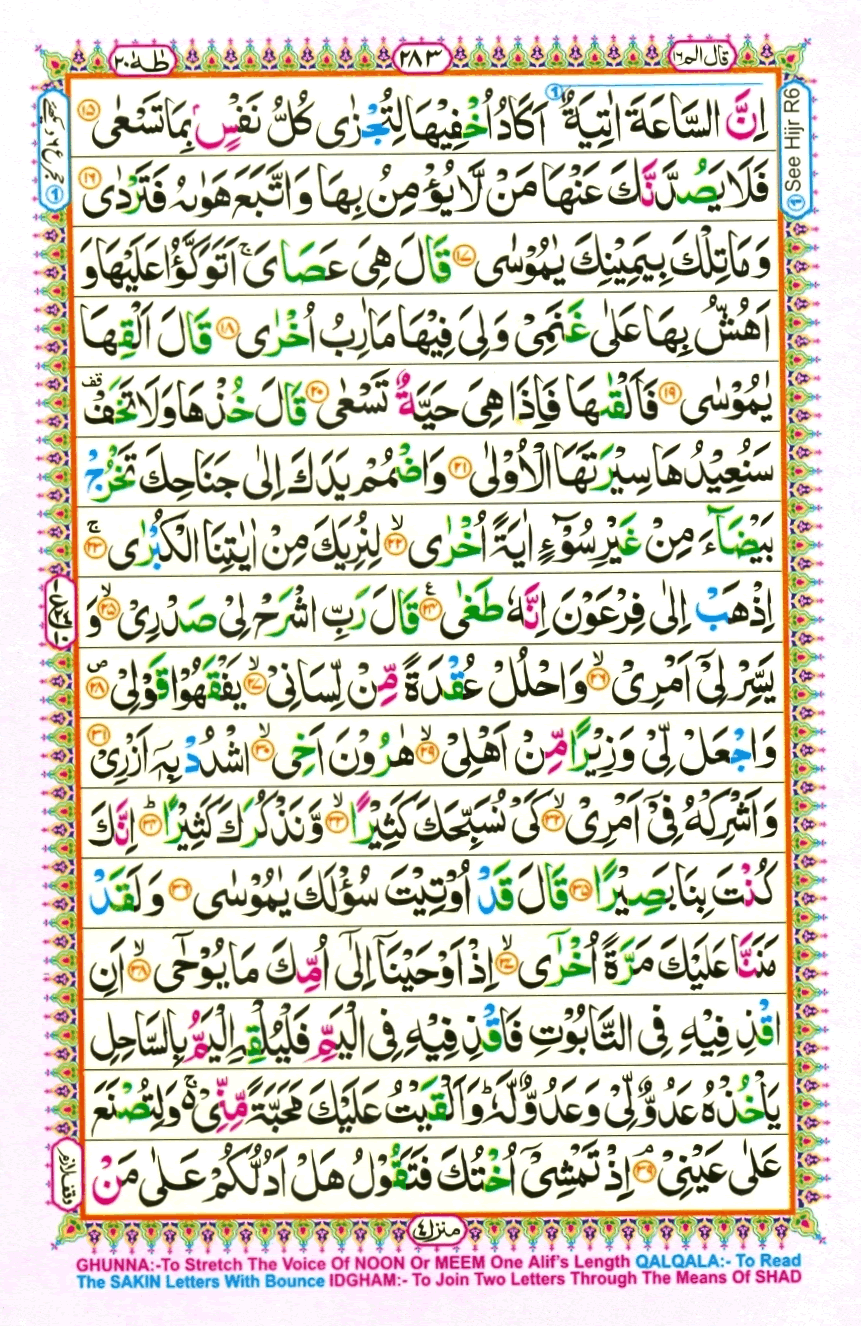 قال الم ١٦
٢٨٣
طٰهٰ ٢٠
See Hijr R6
اِنَّ السَّاعَةَ اٰتِيَةٌ اَكَادُ اُخْفِيْهَا لِتُجْزٰى كُلُّ نَفْسٍۭ بِمَا تَسْعٰى ۝١٥
فَلَا يَصُدَّنَّكَ عَنْهَا مَنْ لَّا يُؤْمِنُ بِهَا وَاتَّبَعَ هَوٰىهُ فَتَرْدٰى ۝١٦
وَمَا تِلْكَ بِيَمِيْنِكَ يٰمُوْسٰى ۝١٧ قَالَ هِىَ عَصَاىَ ۚ اَتَوَكَّؤُا عَلَيْهَا وَ
اَهُشُّ بِهَا عَلٰى غَنَمِىْ وَلِىَ فِيْهَا مَاٰرِبُ اُخْرٰى ۝١٨ قَالَ اَلْقِهَا
يٰمُوْسٰى ۝١٩ فَاَلْقٰىهَا فَاِذَا هِىَ حَيَّةٌ تَسْعٰى ۝٢٠ قَالَ خُذْهَا وَلَا تَخَفْ قف
سَنُعِيْدُهَا سِيْرَتَهَا الْاُوْلٰى ۝٢١ وَاضْمُمْ يَدَكَ اِلٰى جَنَاحِكَ تَخْرُجْ
بَيْضَآءَ مِنْ غَيْرِ سُوْٓءٍ اٰيَةً اُخْرٰى ۙ۝٢٢ لِنُرِيَكَ مِنْ اٰيٰتِنَا الْكُبْرٰى ۚ۝٢٣
اِذْهَبْ اِلٰى فِرْعَوْنَ اِنَّهٗ طَغٰى ۝٢٤ قَالَ رَبِّ اشْرَحْ لِىْ صَدْرِىْ ۙ۝٢٥ وَ
يَسِّرْ لِىْٓ اَمْرِىْ ۙ۝٢٦ وَاحْلُلْ عُقْدَةً مِّنْ لِّسَانِىْ ۙ۝٢٧ يَفْقَهُوْا قَوْلِىْ ۝٢٨
وَاجْعَلْ لِّىْ وَزِيْرًا مِّنْ اَهْلِىْ ۙ۝٢٩ هٰرُوْنَ اَخِى ۙ۝٣٠ اشْدُدْ بِهٖٓ اَزْرِىْ ۝٣١
وَاَشْرِكْهُ فِىْٓ اَمْرِىْ ۙ۝٣٢ كَىْ نُسَبِّحَكَ كَثِيْرًا ۙ۝٣٣ وَّنَذْكُرَكَ كَثِيْرًا ؕ۝٣٤ اِنَّكَ
كُنْتَ بِنَا بَصِيْرًا ۝٣٥ قَالَ قَدْ اُوْتِيْتَ سُؤْلَكَ يٰمُوْسٰى ۝٣٦ وَلَقَدْ
مَنَنَّا عَلَيْكَ مَرَّةً اُخْرٰٓى ۙ۝٣٧ اِذْ اَوْحَيْنَآ اِلٰٓى اُمِّكَ مَا يُوْحٰٓى ۙ۝٣٨ اَنِ
اقْذِفِيْهِ فِى التَّابُوْتِ فَاقْذِفِيْهِ فِى الْيَمِّ فَلْيُلْقِهِ الْيَمُّ بِالسَّاحِلِ
يَاْخُذْهُ عَدُوٌّ لِّىْ وَعَدُوٌّ لَّهٗ ؕ وَاَلْقَيْتُ عَلَيْكَ مَحَبَّةً مِّنِّىْ ۚ وَلِتُصْنَعَ
عَلٰى عَيْنِىْ ۘ۝٣٩ اِذْ تَمْشِىْٓ اُخْتُكَ فَتَقُوْلُ هَلْ اَدُلُّكُمْ عَلٰى مَنْ
وقف لازم
منزل ٤
GHUNNA:-To Stretch The Voice Of NOON Or MEEM One Alif's Length QALQALA:- To Read
The SAKIN Letters With Bounce IDGHAM:- To Join Two Letters Through The Means Of SHAD